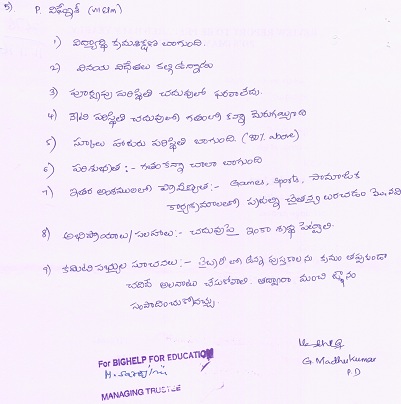 5). P. విఘ్నేష్ (VII Elm)
1) విద్యార్థి క్రమశిక్షణ బాగుంది.
2) వినయ విధేయతలు కల్గి ఉన్నాడు
3) పూర్వపు పరిస్థితి చదువులో ఫరవాలేదు.
4) నేటి పరిస్థితి చదువులో గతంలో కన్నా మెరుగయ్యాడు
5) స్కూలు హాజరు పరిస్థితి బాగుంది. (90% above)
6) పరిశుభ్రత :- గతంకన్నా చాలా బాగుంది
7) ఇతర అంశములలో ప్రావీణ్యత:- Games, Sports, సామాజిక
కార్యక్రమాలలో
8) అభిప్రాయాలు/సలహాలు:- చదువుపై ఇంకా శ్రద్ధ పెట్టాలి.
9) కమిటీ సభ్యుల సూచనలు:- లైబ్రరీ లో ఉన్న పుస్తకాలను క్రమం తప్పకుండా
చదివే అలవాటు చేసుకోవాలి. తద్వారా మంచి జ్ఞానం
సంపాదించుకోవచ్చు.
For BIGHELP FOR EDUCATION
MANAGING TRUSTEE
G. Madhukumar
P.D